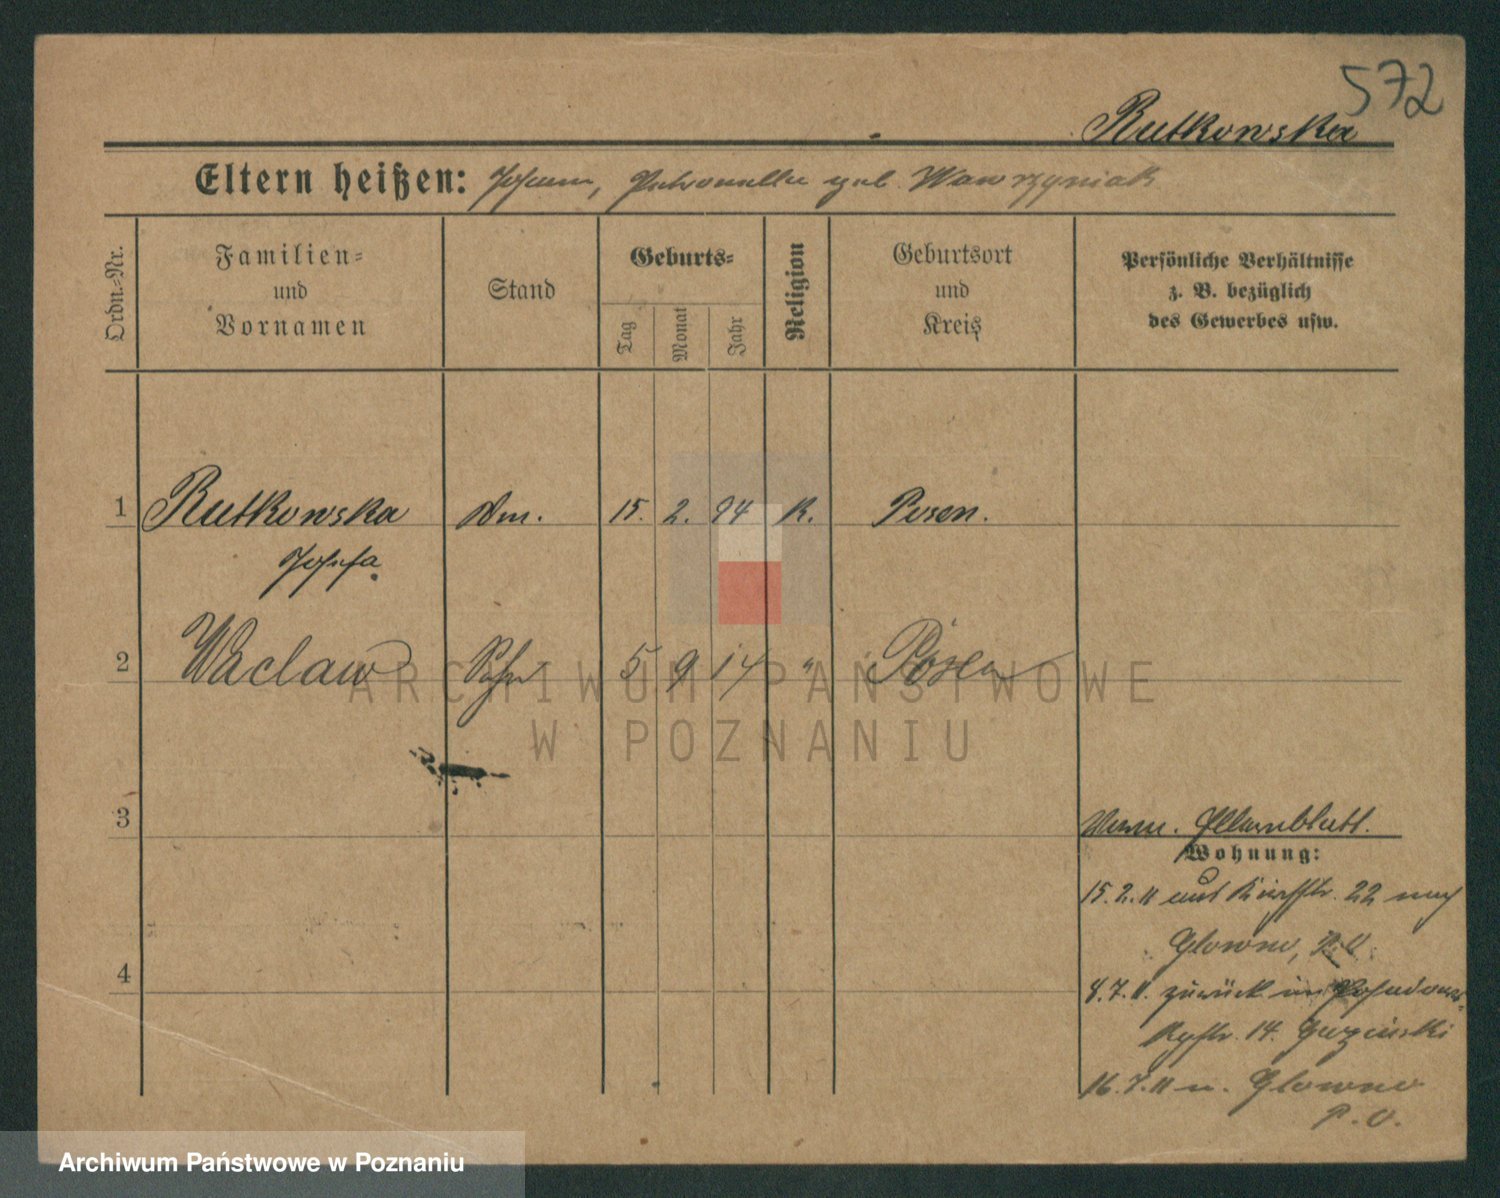 572
Rutkowska
Eltern heißen: Johann, Petronella geb. Wawrzyniak
Ordn.=Nr.
Familien=
und
Vornamen
Stand
Geburts=
Tag
Monat
Jahr
Religion
Geburtsort
und
Kreis
Persönliche Verhältnisse
z. B. bezüglich
des Gewerbes usw.
1 Rutkowska 15. 2. 94 K. Posen.
Josefa
2 Waclaw Sohn 5 9 14 " Posen
ARCHIWUM PAŃSTWOWE
W POZNANIU
3
Elternblatt.
Wohnung:
15.2.11 aus 22 nach
Glowno, P.O.
4
8.7.11. zurück
14.
16.7.11 n. Glowno
P.O.
Archiwum Państwowe w Poznaniu